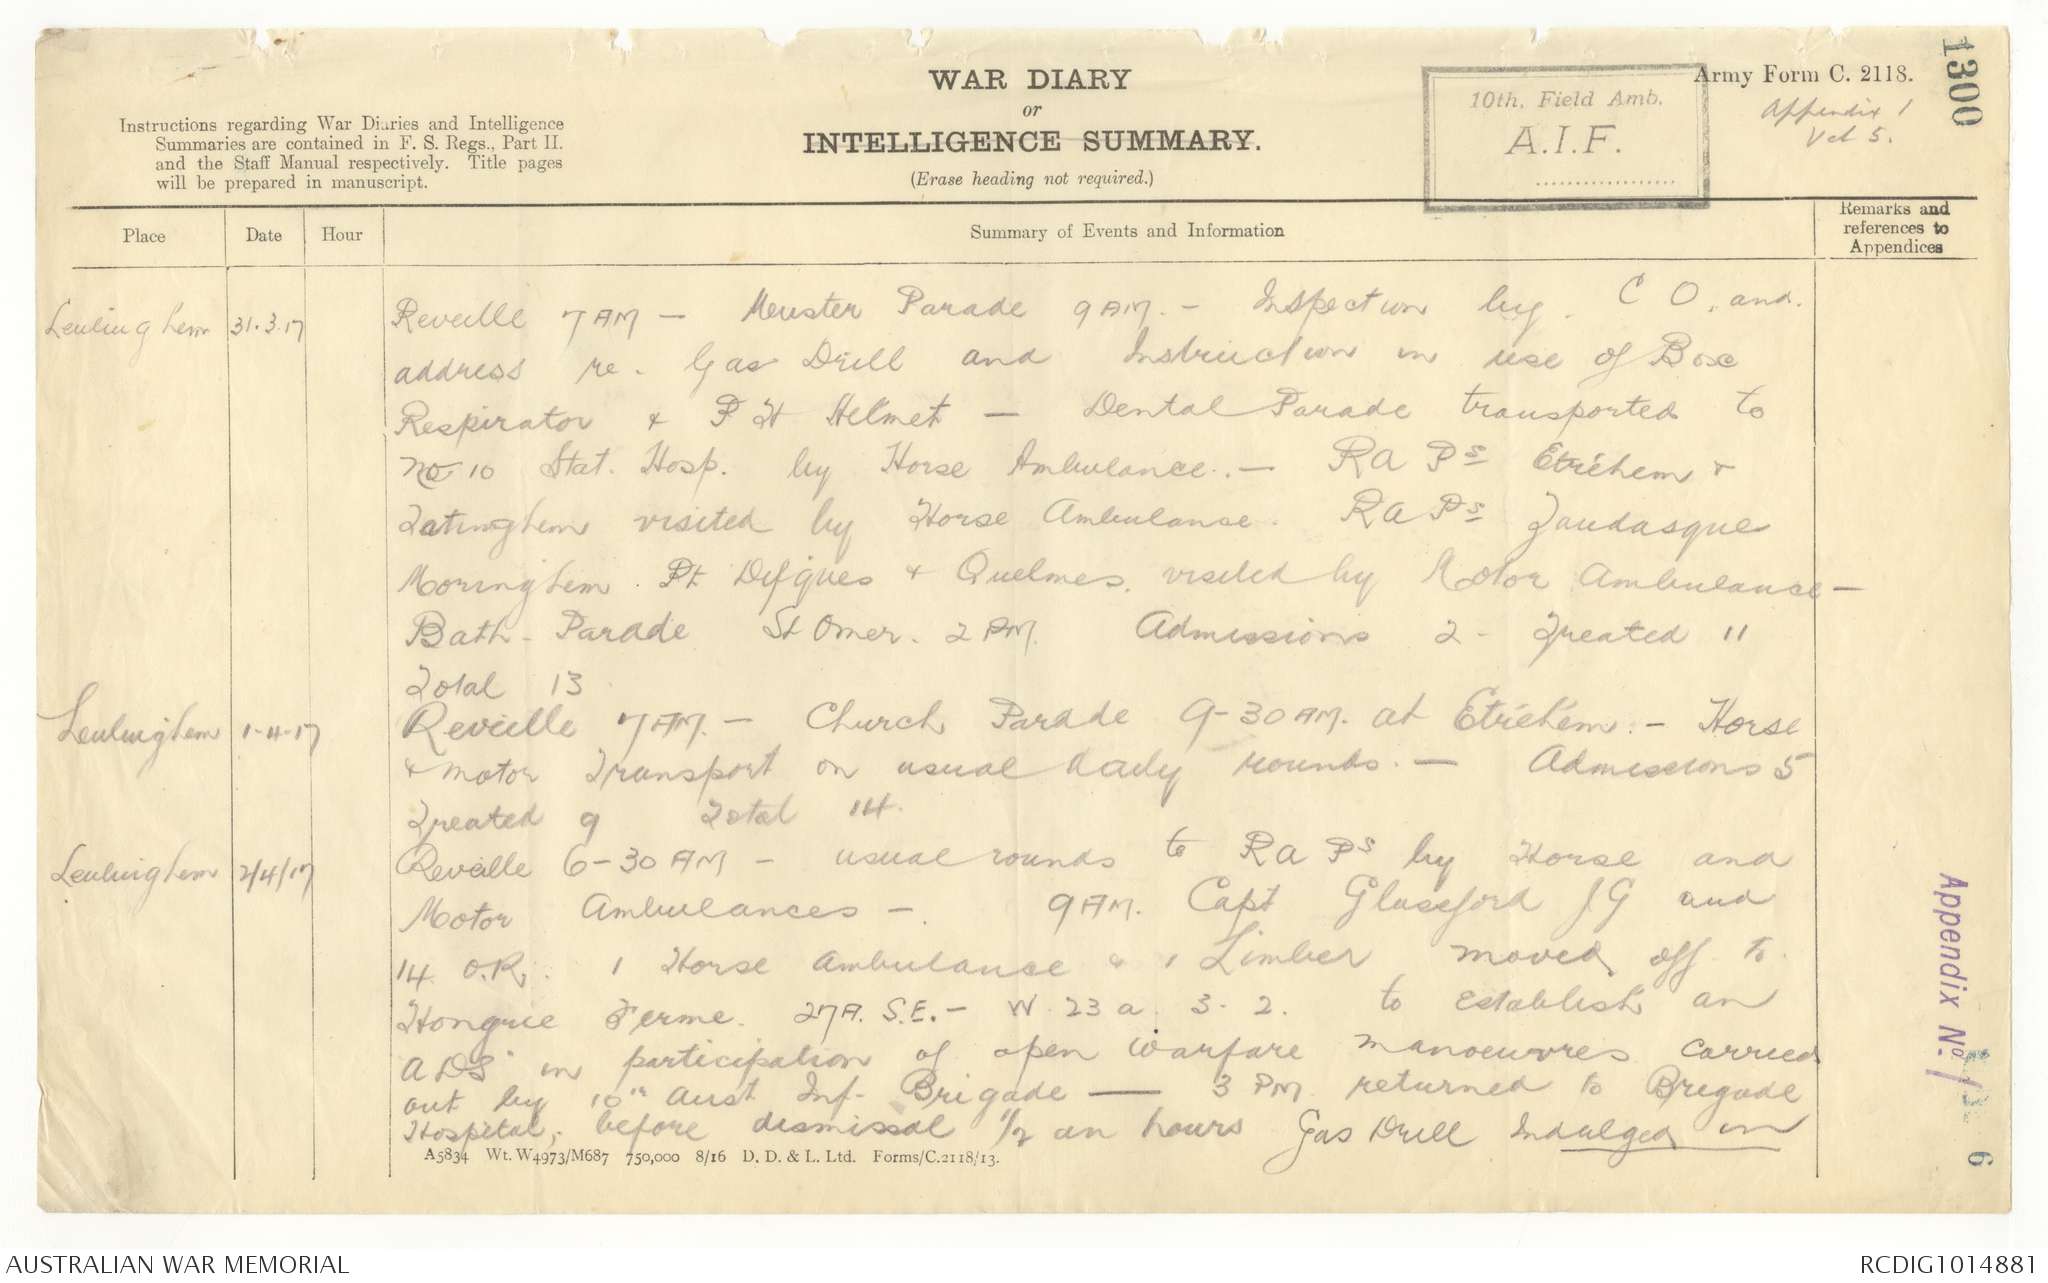 1300
Army Form C. 2118.
Appendix 1
Vol 5.
WAR DIARY
or
INTELLIGENCE SUMMARY.
(Erase heading not required.)
10th. Field Amb.
A.I.F.
Instructions regarding War Diaries and Intelligence
Summaries are contained in F. S. Regs., Part II.
and the Staff Manual respectively. Title pages
will be prepared in manuscript.
Place Date Hour Summary of Events and Information Remarks and references to Appendices
Leulinghem 31.3.17 Reveille 7 AM — Muster Parade 9 AM. — Inspection by. C O. and.
address re. Gas Drill and Instruction in use of Box
Respirator & P H Helmet — Dental Parade transported to
No 10 Stat. Hosp. by Horse Ambulance. — R A Ps Etréhem &
Tatinghem visited by Horse Ambulance. R A Ps Zaudasque
Moringhem. Pt Difques & Quelmes. visited by Motor Ambulance —
Bath - Parade St Omer. 2 PM. Admissions 2 - Treated 11
Total 13
Leulinghem 1-4-17 Reveille 7 AM. — Church Parade 9-30 AM. at Etréhem. — Horse
& motor Transport on usual daily rounds. — Admissions 5
Treated 9 Total 14.
Leulinghem 2/4/17 Reveille 6-30 AM — usual rounds to R A Ps by Horse and
Motor Ambulances —. 9 AM. Capt Glassford J G and
14 O.R. 1 Horse Ambulance & 1 Limber moved off to
Hongrie Ferme. 27A. S.E. — W. 23 a. 3. 2. to establish an
ADS in participation of open warfare manoeuvres carried
out by 10th Aust Inf. Brigade — 3 PM returned to Brigade
Hospital, before dismissal 1/2 an hours Gas Drill Indulged in
A5834 Wt. W4973/M687 750,000 8/16 D. D. & L. Ltd. Forms/C.2118/13.
Appendix No. 1
6
AUSTRALIAN WAR MEMORIAL RCDIG1014881